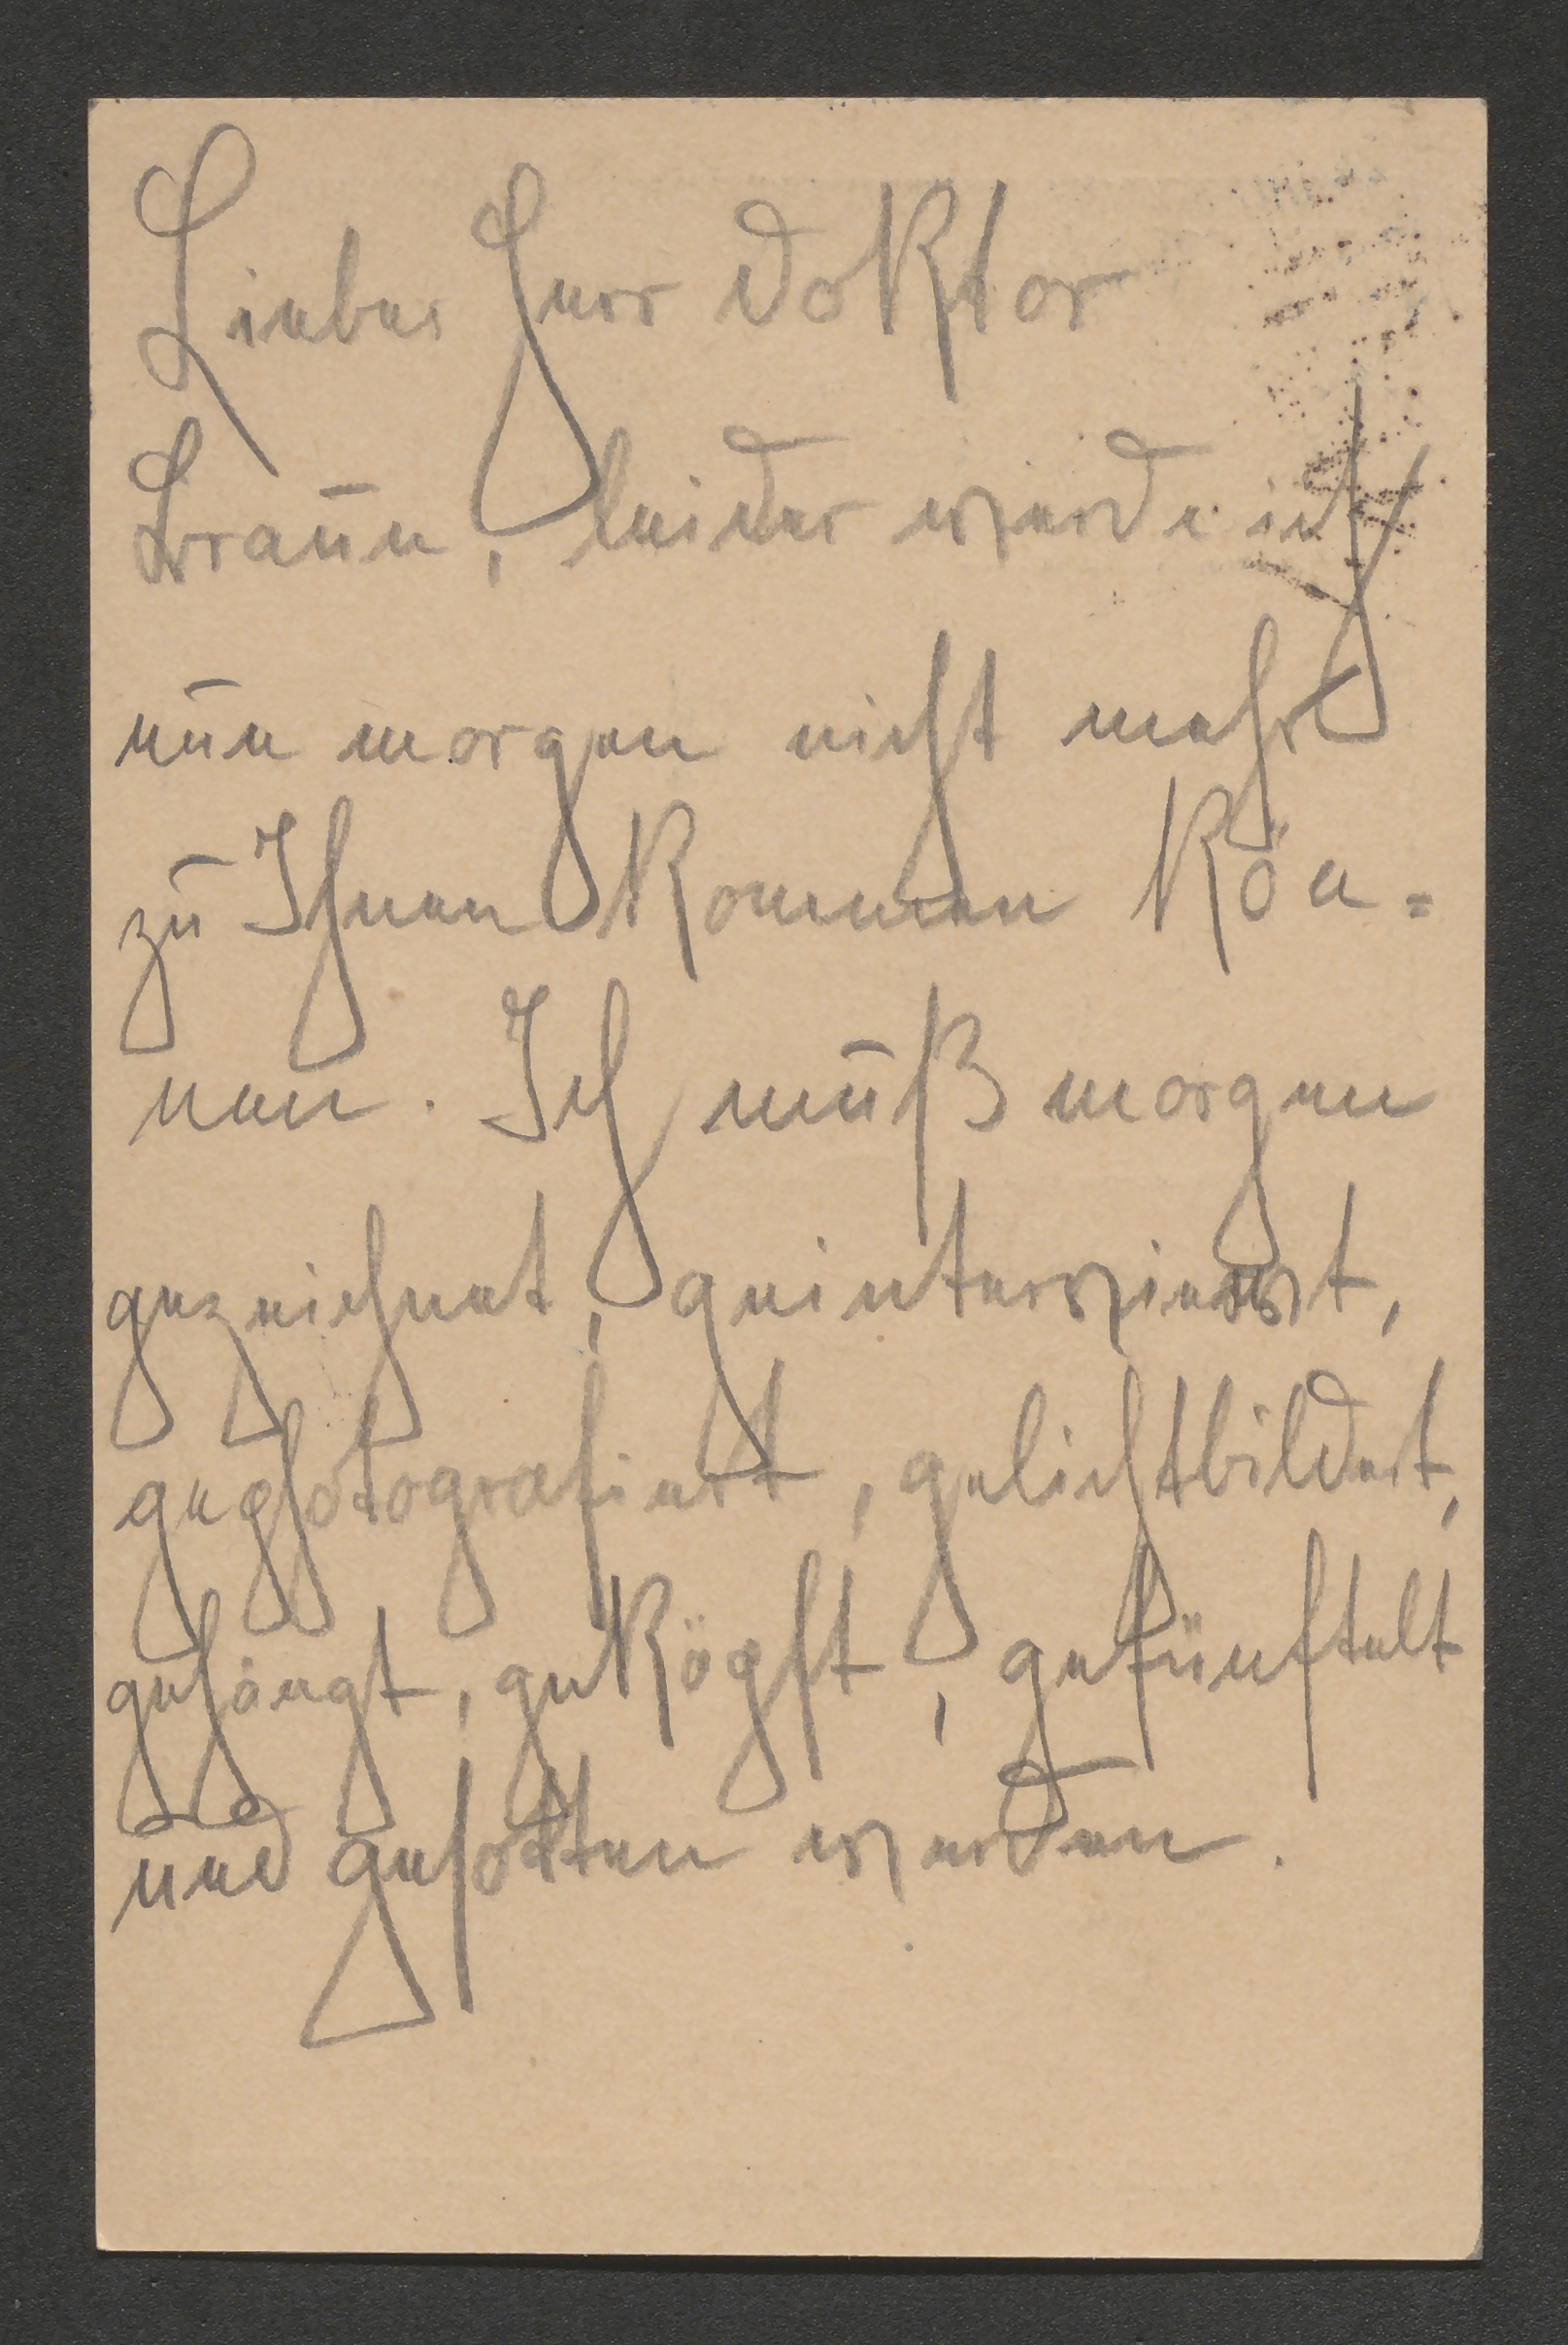 Lieber Herr Doktor
Braun, leider werde ich
nun morgen nicht mehr
zu Ihnen kommen kön=
nen. Ich muß morgen
gezeichnet, geinterviewt,
gephotografiert, gelichtbildert,
gehängt, geköpft, gefünftelt
und gesotten werden.